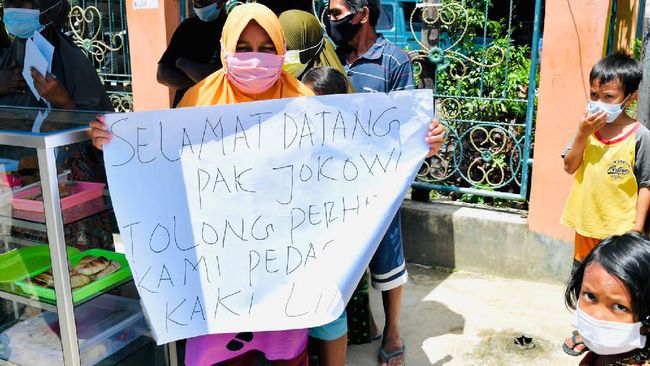 SELAMAT DATANG
PAK JOKOWI
TOLONG PERH
KAMI PEDA
KAKI LI